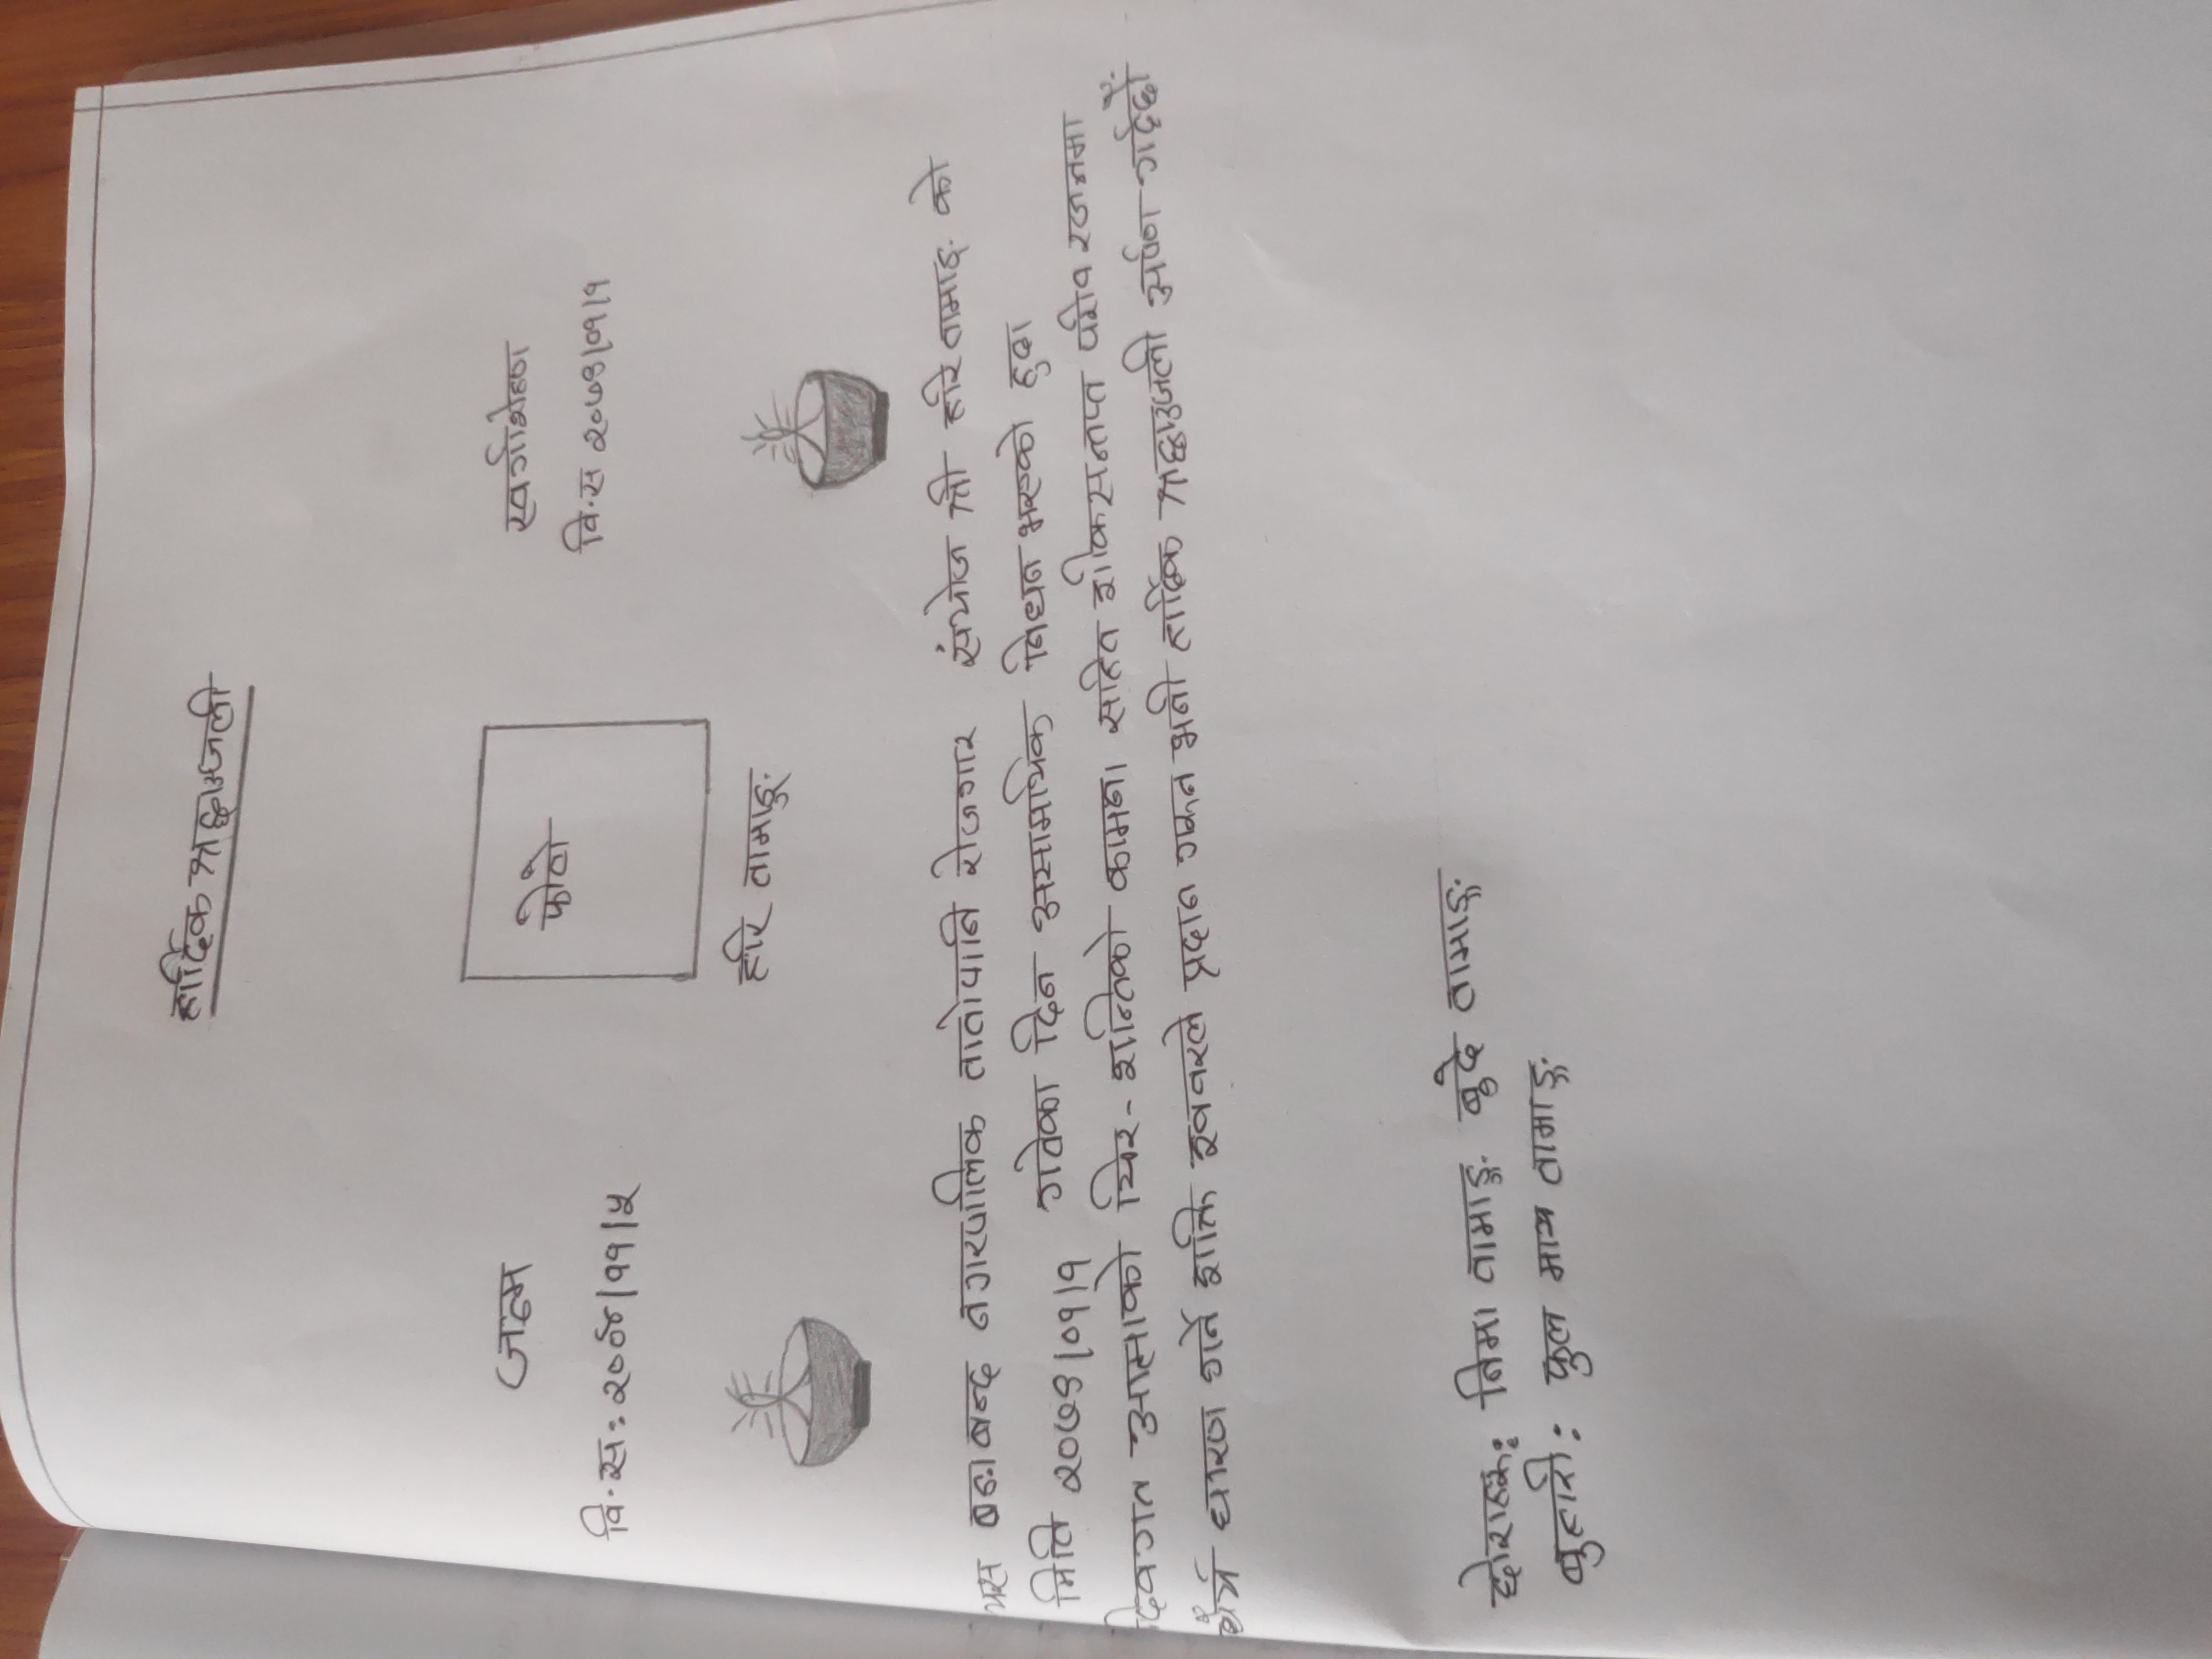 हार्दिक श्रद्धाञ्जली
जन्म
फोटो
स्वर्गारोहण
वि.स: २००४/११/५
वि.स २०७९/०१/१
हरि तामाङ्ग
यस बन्द नगरपालिक तातोपानि रोजगार संयोज श्री हरि तामाङ को
मिति २०७९/०१/१ गतेका दिन असामायिक निधन भएको हुदा
दिवगत आत्माको चिर-शान्तिको कामना सहित शोकसन्तप्त परीवारजनमा
धैर्य धारण गर्ने शक्ति इववरले प्रदान गरून भनी हार्दिक श्रद्धाञ्जली अर्पण गर्दछौं
छोराहरू: निमा तामाङ्ग बुदे तामाङ्ग
बुहारी: फुल माय तामाङ्ग